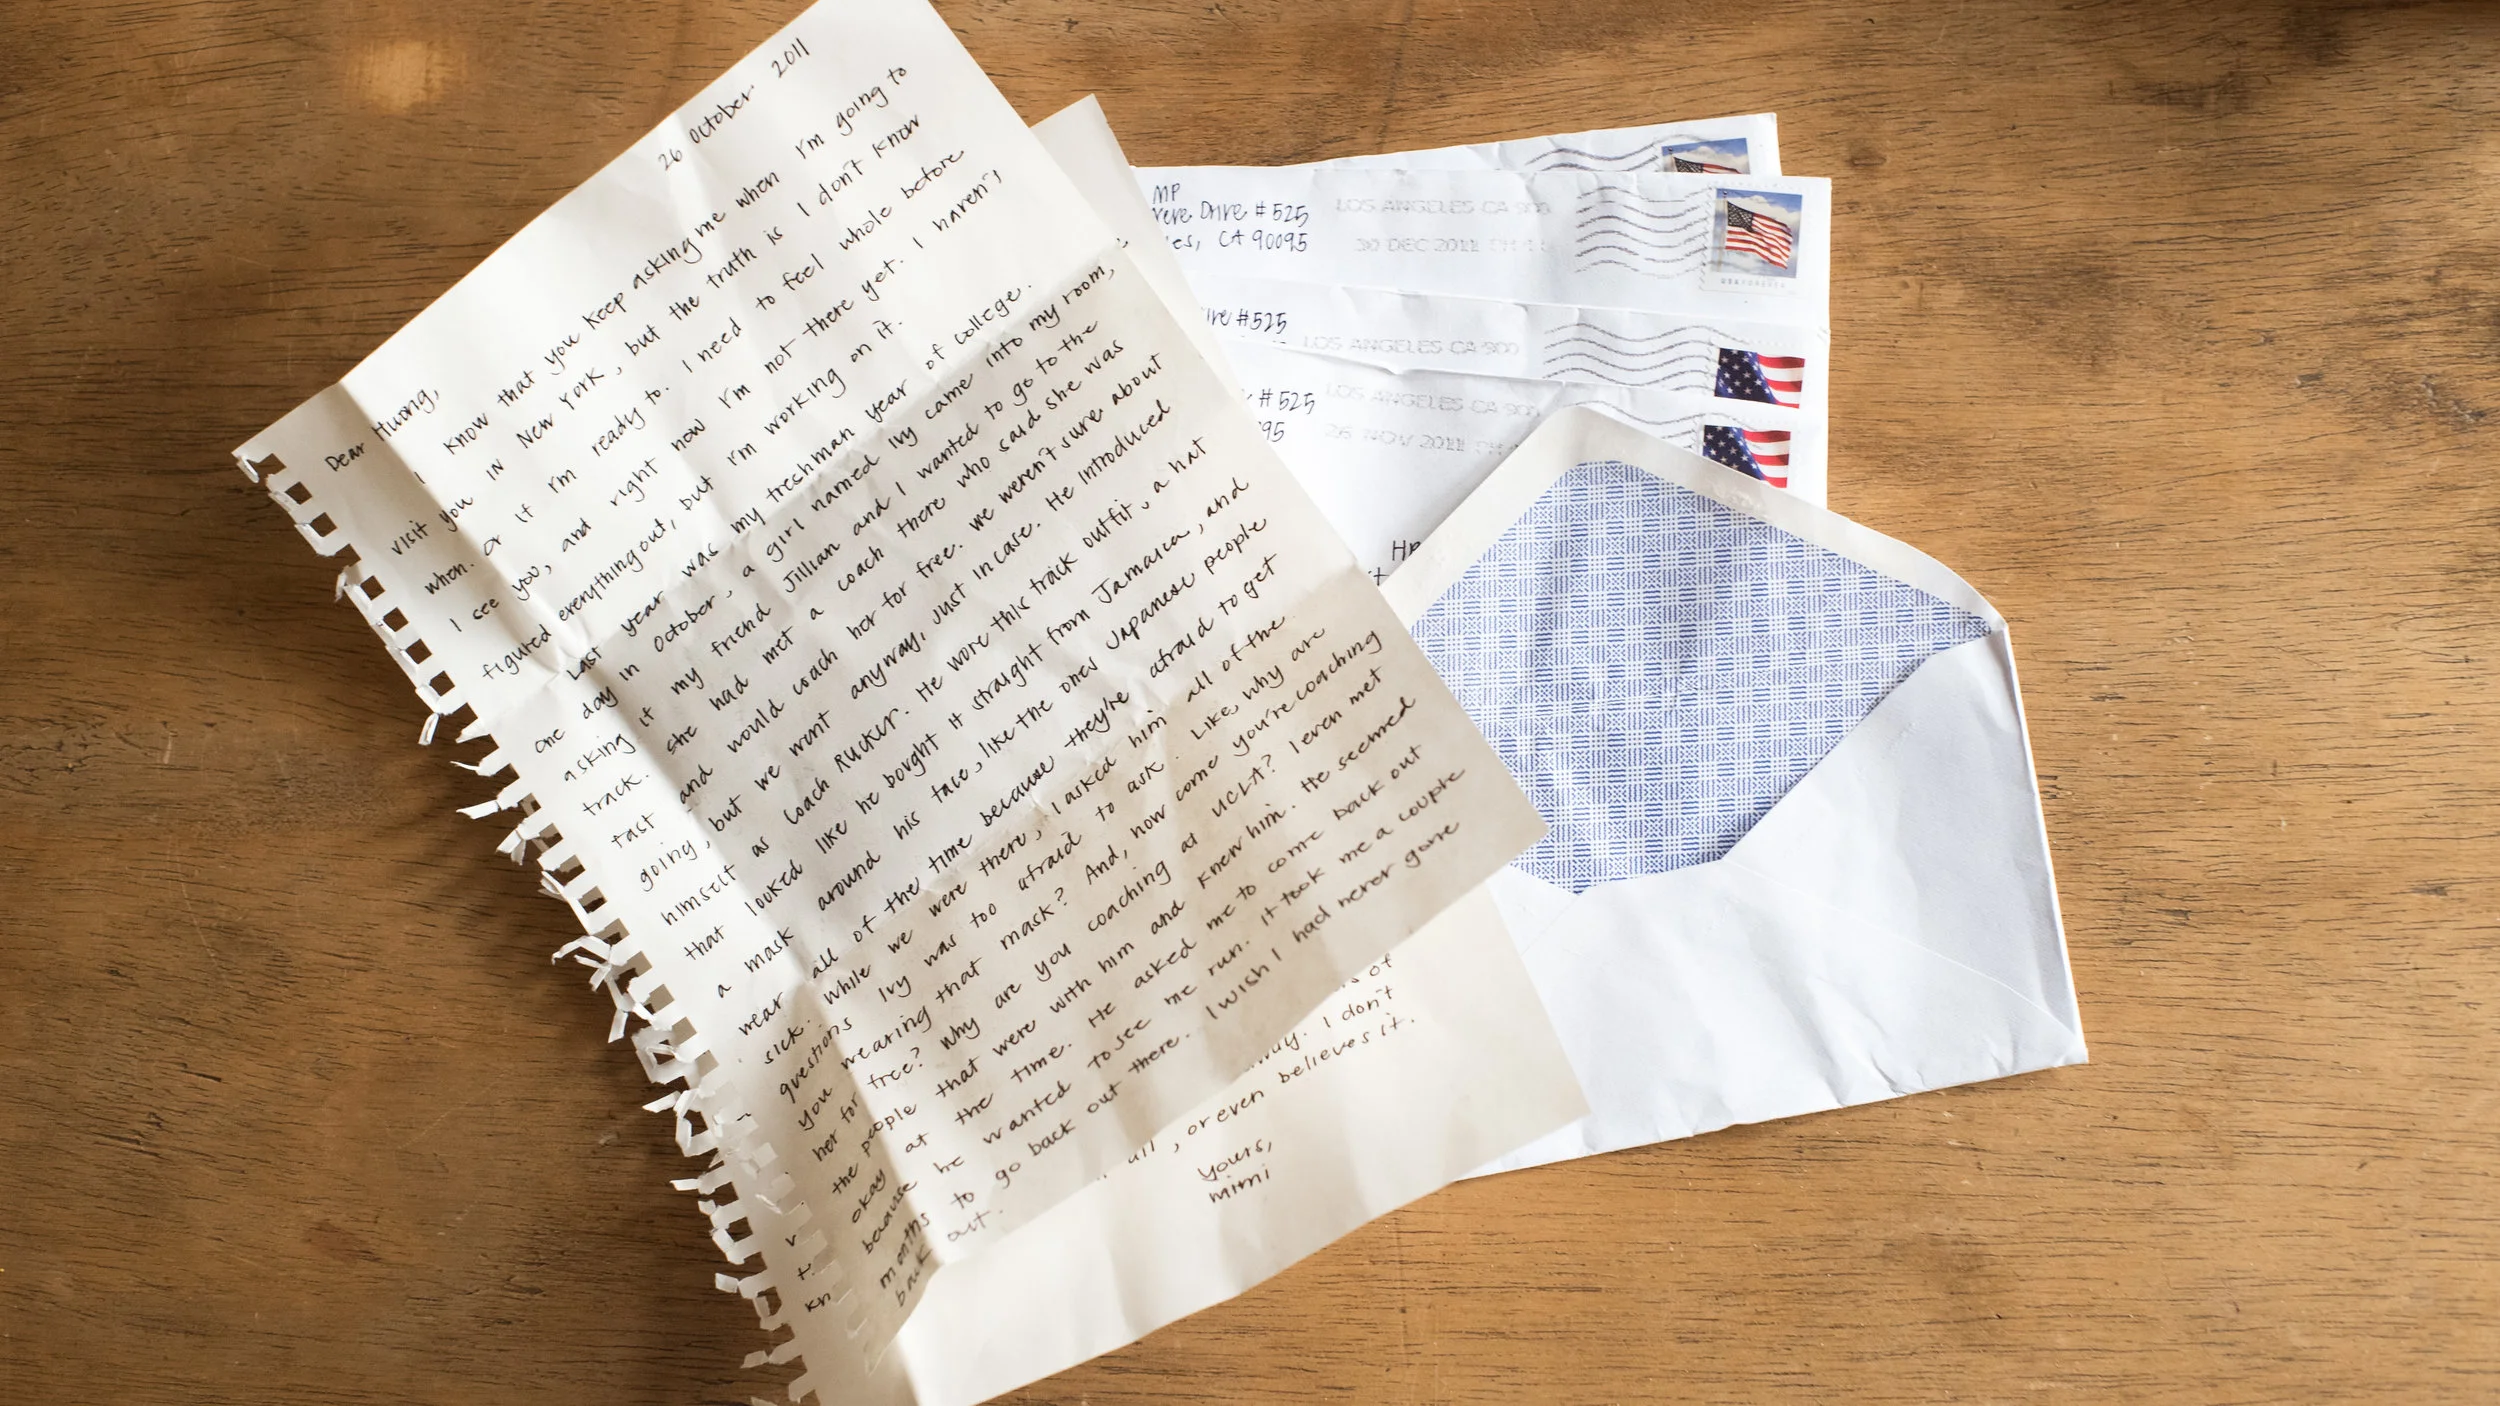 26 October 2011
Dear Huong,
I know that you keep asking me when I'm going to
visit you in New York, but the truth is I don't know
when. Or if I'm ready to. I need to feel whole before
I see you, and right now I'm not there yet. I haven't
figured everything out, but I'm working on it.
Last year was my freshman year of college.
One day in October, a girl named Ivy came into my room,
asking if my friend Jillian and I wanted to go to the
track. She had met a coach there who said she was
fast and would coach her for free. We weren't sure about
going, but we went anyway, just in case. He introduced
himself as Coach Rucker. He wore this track outfit, a hat
that looked like he bought it straight from Jamaica, and
a mask around his face, like the ones Japanese people
wear all of the time because they're afraid to get
sick. While we were there, I asked him all of the
questions Ivy was too afraid to ask. Like, why are
you wearing that mask? And, how come you're coaching
her for free? Why are you coaching at UCLA? I even met
the people that were with him and knew him. He seemed
okay at the time. He asked me to come back out
because he wanted to see me run. It took me a couple
months to go back out there. I wish I had never gone
back out.
of
away. I don't
all, or even believes it.
Yours,
Mimi
MP
Drive #525
CA 90095
LOS ANGELES CA 900
30 DEC 2011 PM
#525
LOS ANGELES CA 900
#525
LOS ANGELES CA 900
26 NOV 2011 PM